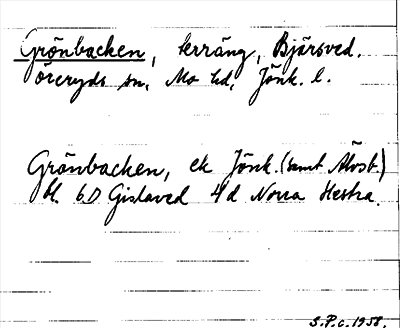 Grönbacken, terräng, Bjärsved.
Öreryds sn, Mo hd, Jönk. l.
Grönbacken, ek Jönk. (samt Älvsb.)
bl. 6D Gislaved 4d Norra Hestra.
S.P.c. 1958.